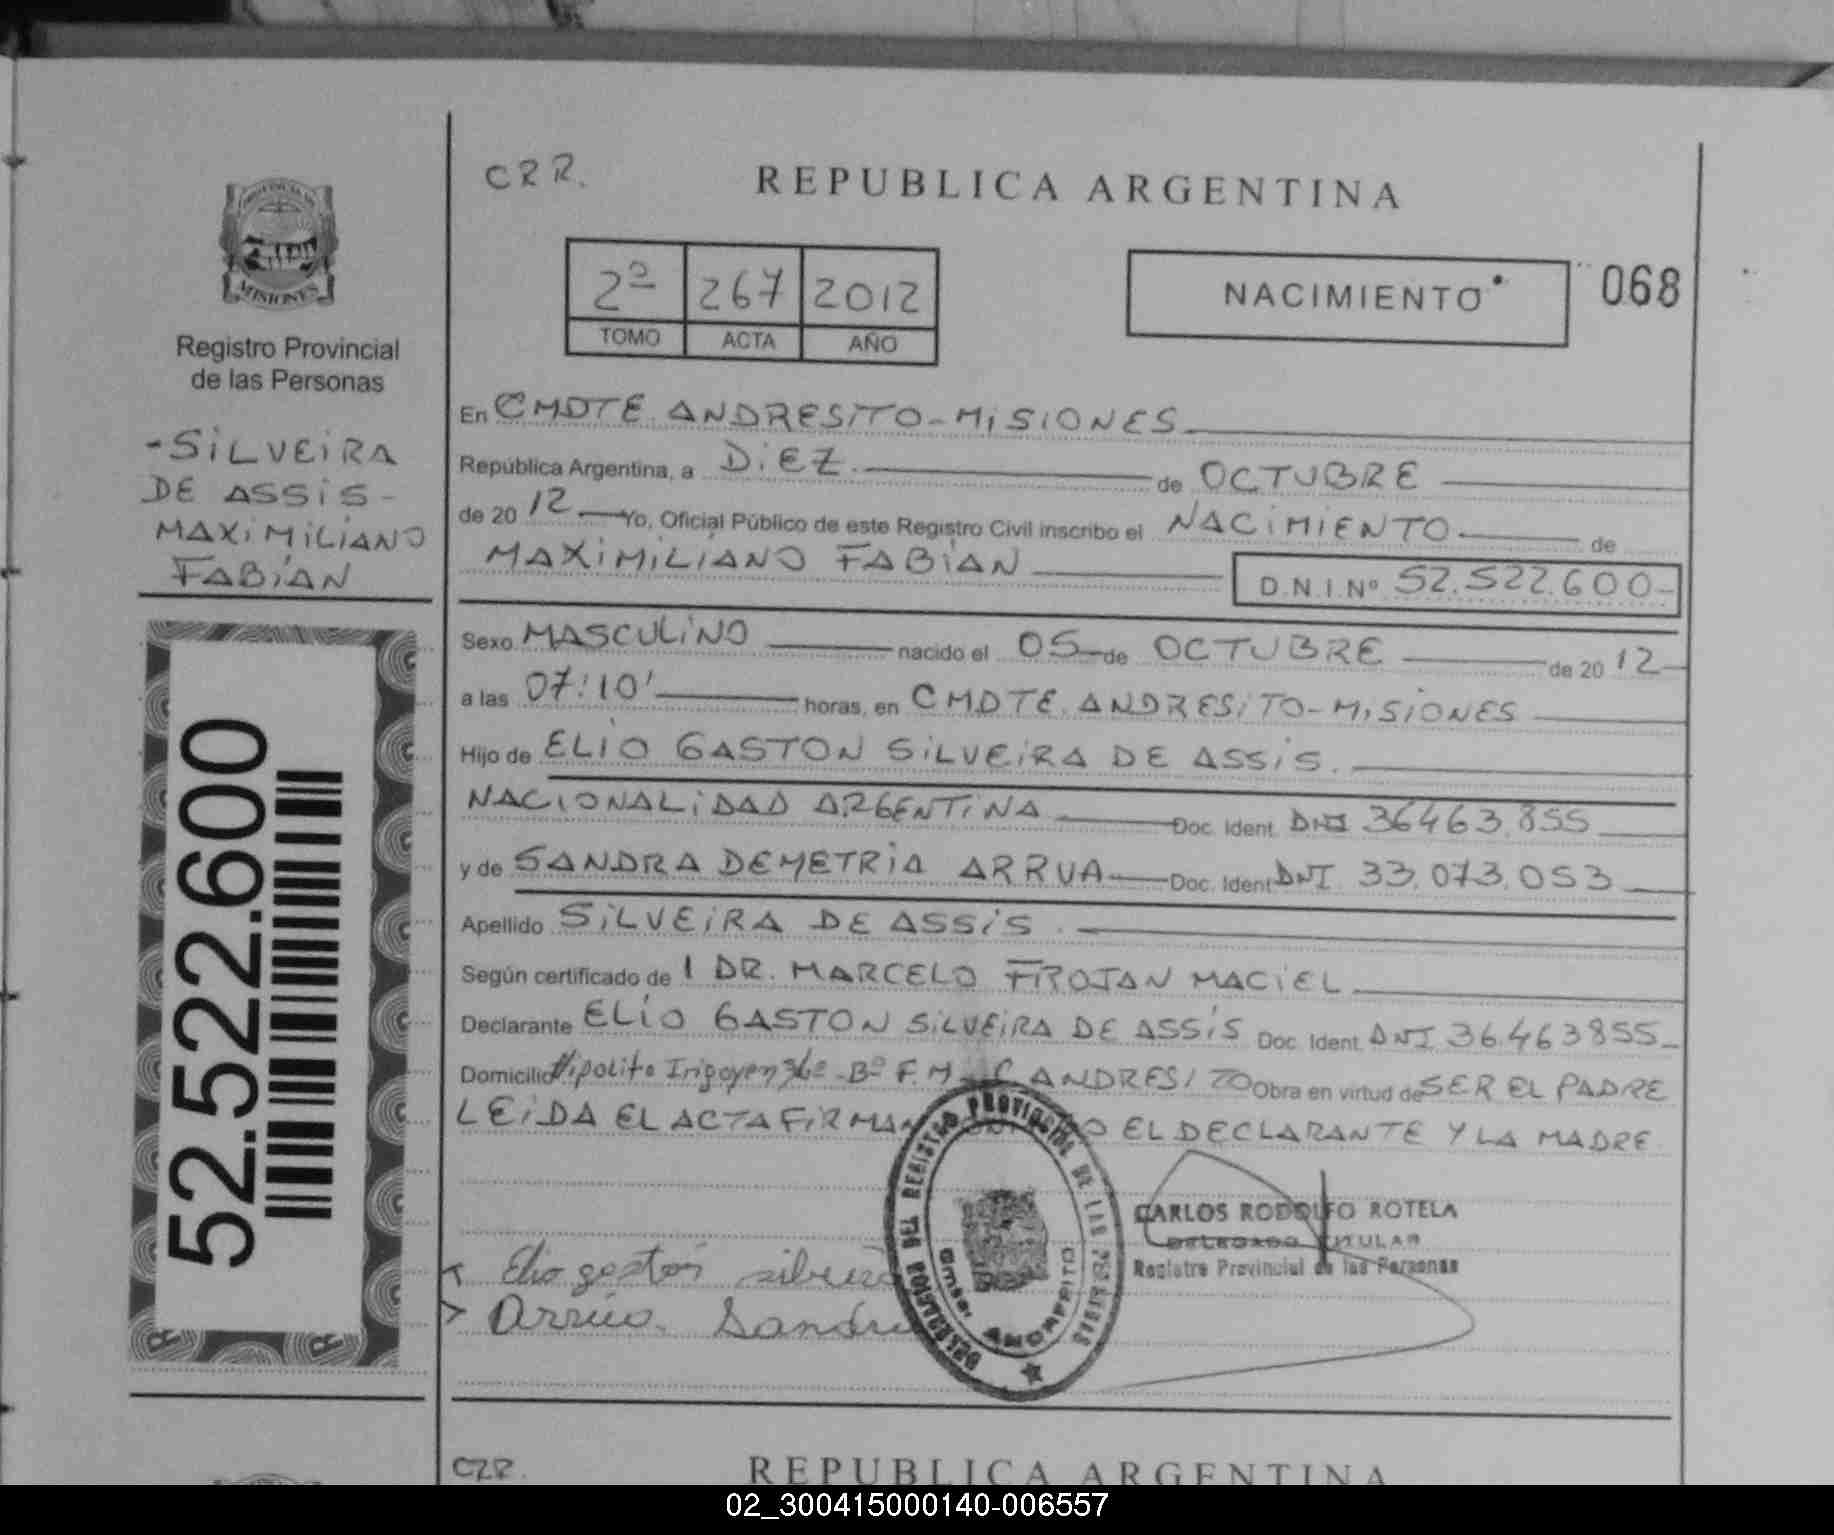 CRR.
REPUBLICA ARGENTINA
2º 267 2012
TOMO ACTA AÑO
NACIMIENTO
068
MISIONES
Registro Provincial
de las Personas
-SILVEIRA
DE ASSIS-
MAXIMILIANO
FABIAN
52.522.600
En CMDTE. ANDRESITO-MISIONES
República Argentina, a DIEZ. de OCTUBRE
de 20 12 Yo, Oficial Público de este Registro Civil inscribo el NACIMIENTO de
MAXIMILIANO FABIAN D.N.I.Nº 52.522.600-
Sexo MASCULINO nacido el 05 de OCTUBRE de 20 12
a las 07:10' horas, en CMDTE. ANDRESITO-MISIONES
Hijo de ELIO GASTON SILVEIRA DE ASSIS.
NACIONALIDAD ARGENTINA Doc. Ident. DNI 36463.855
y de SANDRA DEMETRIA ARRUA Doc. Ident DNI 33.073.053
Apellido SILVEIRA DE ASSIS.
Según certificado de 1 DR. MARCELO FROJAN MACIEL
Declarante ELIO GASTON SILVEIRA DE ASSIS Doc. Ident. DNI 36.463855
Domicilio Hipolito Irigoyen Bº F.M. C ANDRESITO Obra en virtud de SER EL PADRE
LEIDA EL ACTA EL DECLARANTE Y LA MADRE
DELEGACION DEL REGISTRO PROVINCIAL DE LAS PERSONAS
Cmte. ANDRESITO
CARLOS RODOLFO ROTELA
DELEGADO TITULAR
Registro Provincial de las Personas
Elio gaston silveira
Arrúa. Sandra
CRR.
REPUBLICA ARGENTINA
02_300415000140-006557